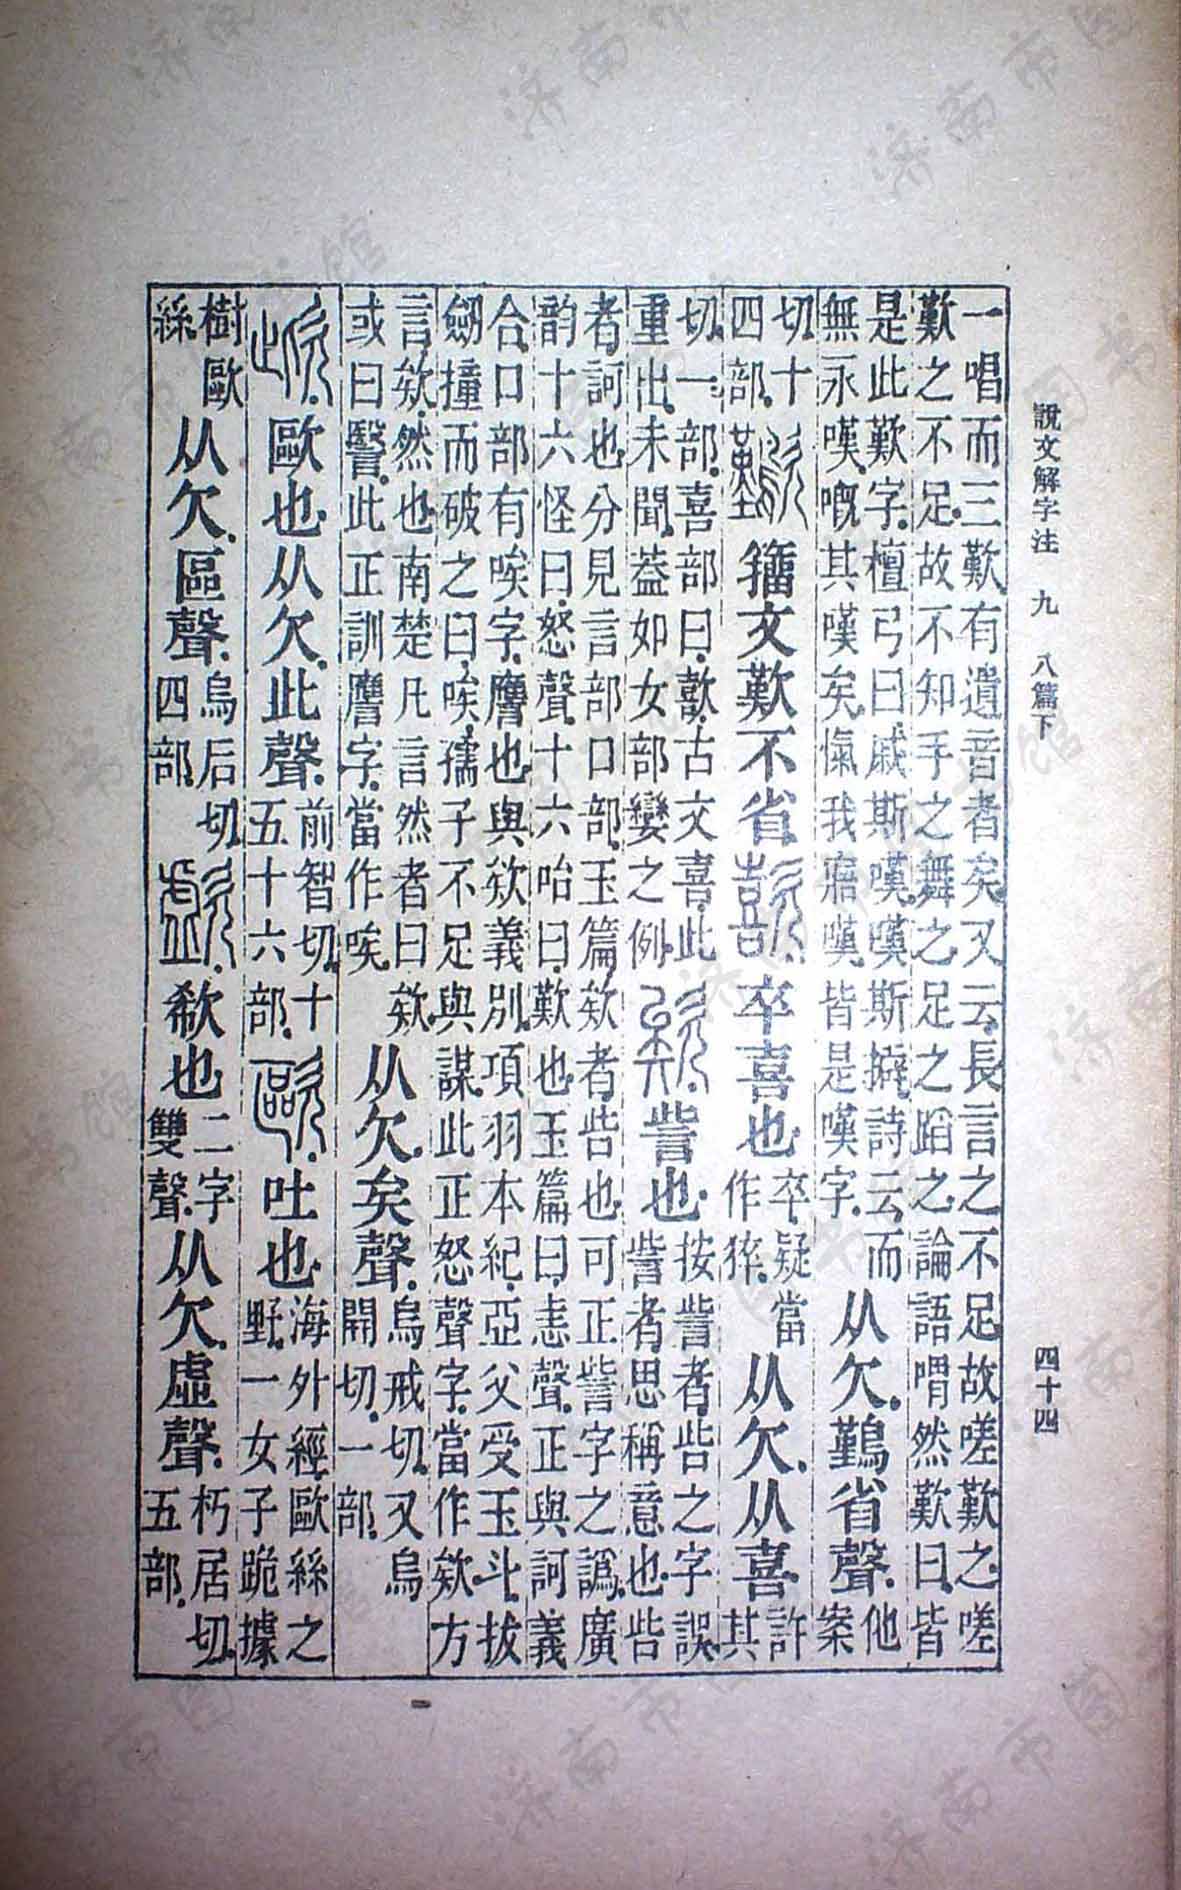 説文解字注 九 八篇下 四十四
一唱而三歎有遺音者矣又云長言之不足故嗟歎之嗟
歎之不足故不知手之舞之足之蹈之論語喟然歎曰皆
是此歎字檀弓曰戚斯嘆嘆斯擗詩云而
無永嘆嘅其嘆矣愾我寤嘆皆是嘆字
从欠鷬省聲
他
案
切十
四部
籒文歎不省
歖
卒喜也
卒疑當
作猝
从欠从喜
許
其
切一部喜部曰歖古文喜此
重出未聞葢如女部孌之例
欸
訾也
按訾者呰之字誤
訾者思稱意也呰
者訶也分見言部口部玉篇欸者呰也可正訾字之譌廣
韵十六怪曰怒聲十六咍曰歎也玉篇曰恚聲正與訶義
合口部有唉字譍也與欸義別項羽本紀亞父受玉斗拔
劒撞而破之曰唉孺子不足與謀此正怒聲字當作欸方
言欸然也南楚凡言然者曰欸
或曰毉此正訓譍字當作唉
从欠矣聲
烏戒切又烏
開切一部
㱔
歐也从欠此聲
前智切十
五十六部
歐
吐也
海外經歐絲之
野一女子跪據
樹歐
絲
从欠區聲
烏后切
四部
歔
欷也
二字
雙聲
从欠虛聲
朽居切
五部
济南市图书馆